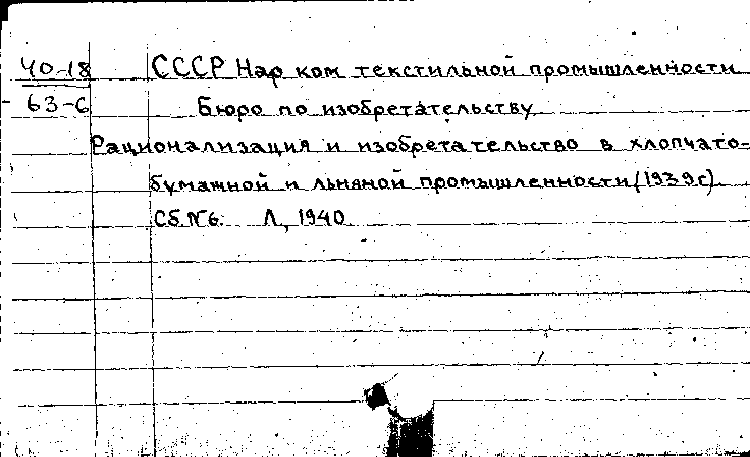 40-18 СССР Нар ком текстильной промышленности
63-6 Бюро по изобретательству
Рационализация и изобретательство в хлопчато-
бумажной и льняной промышленности (1939г)
Сб. №6. Л, 1940